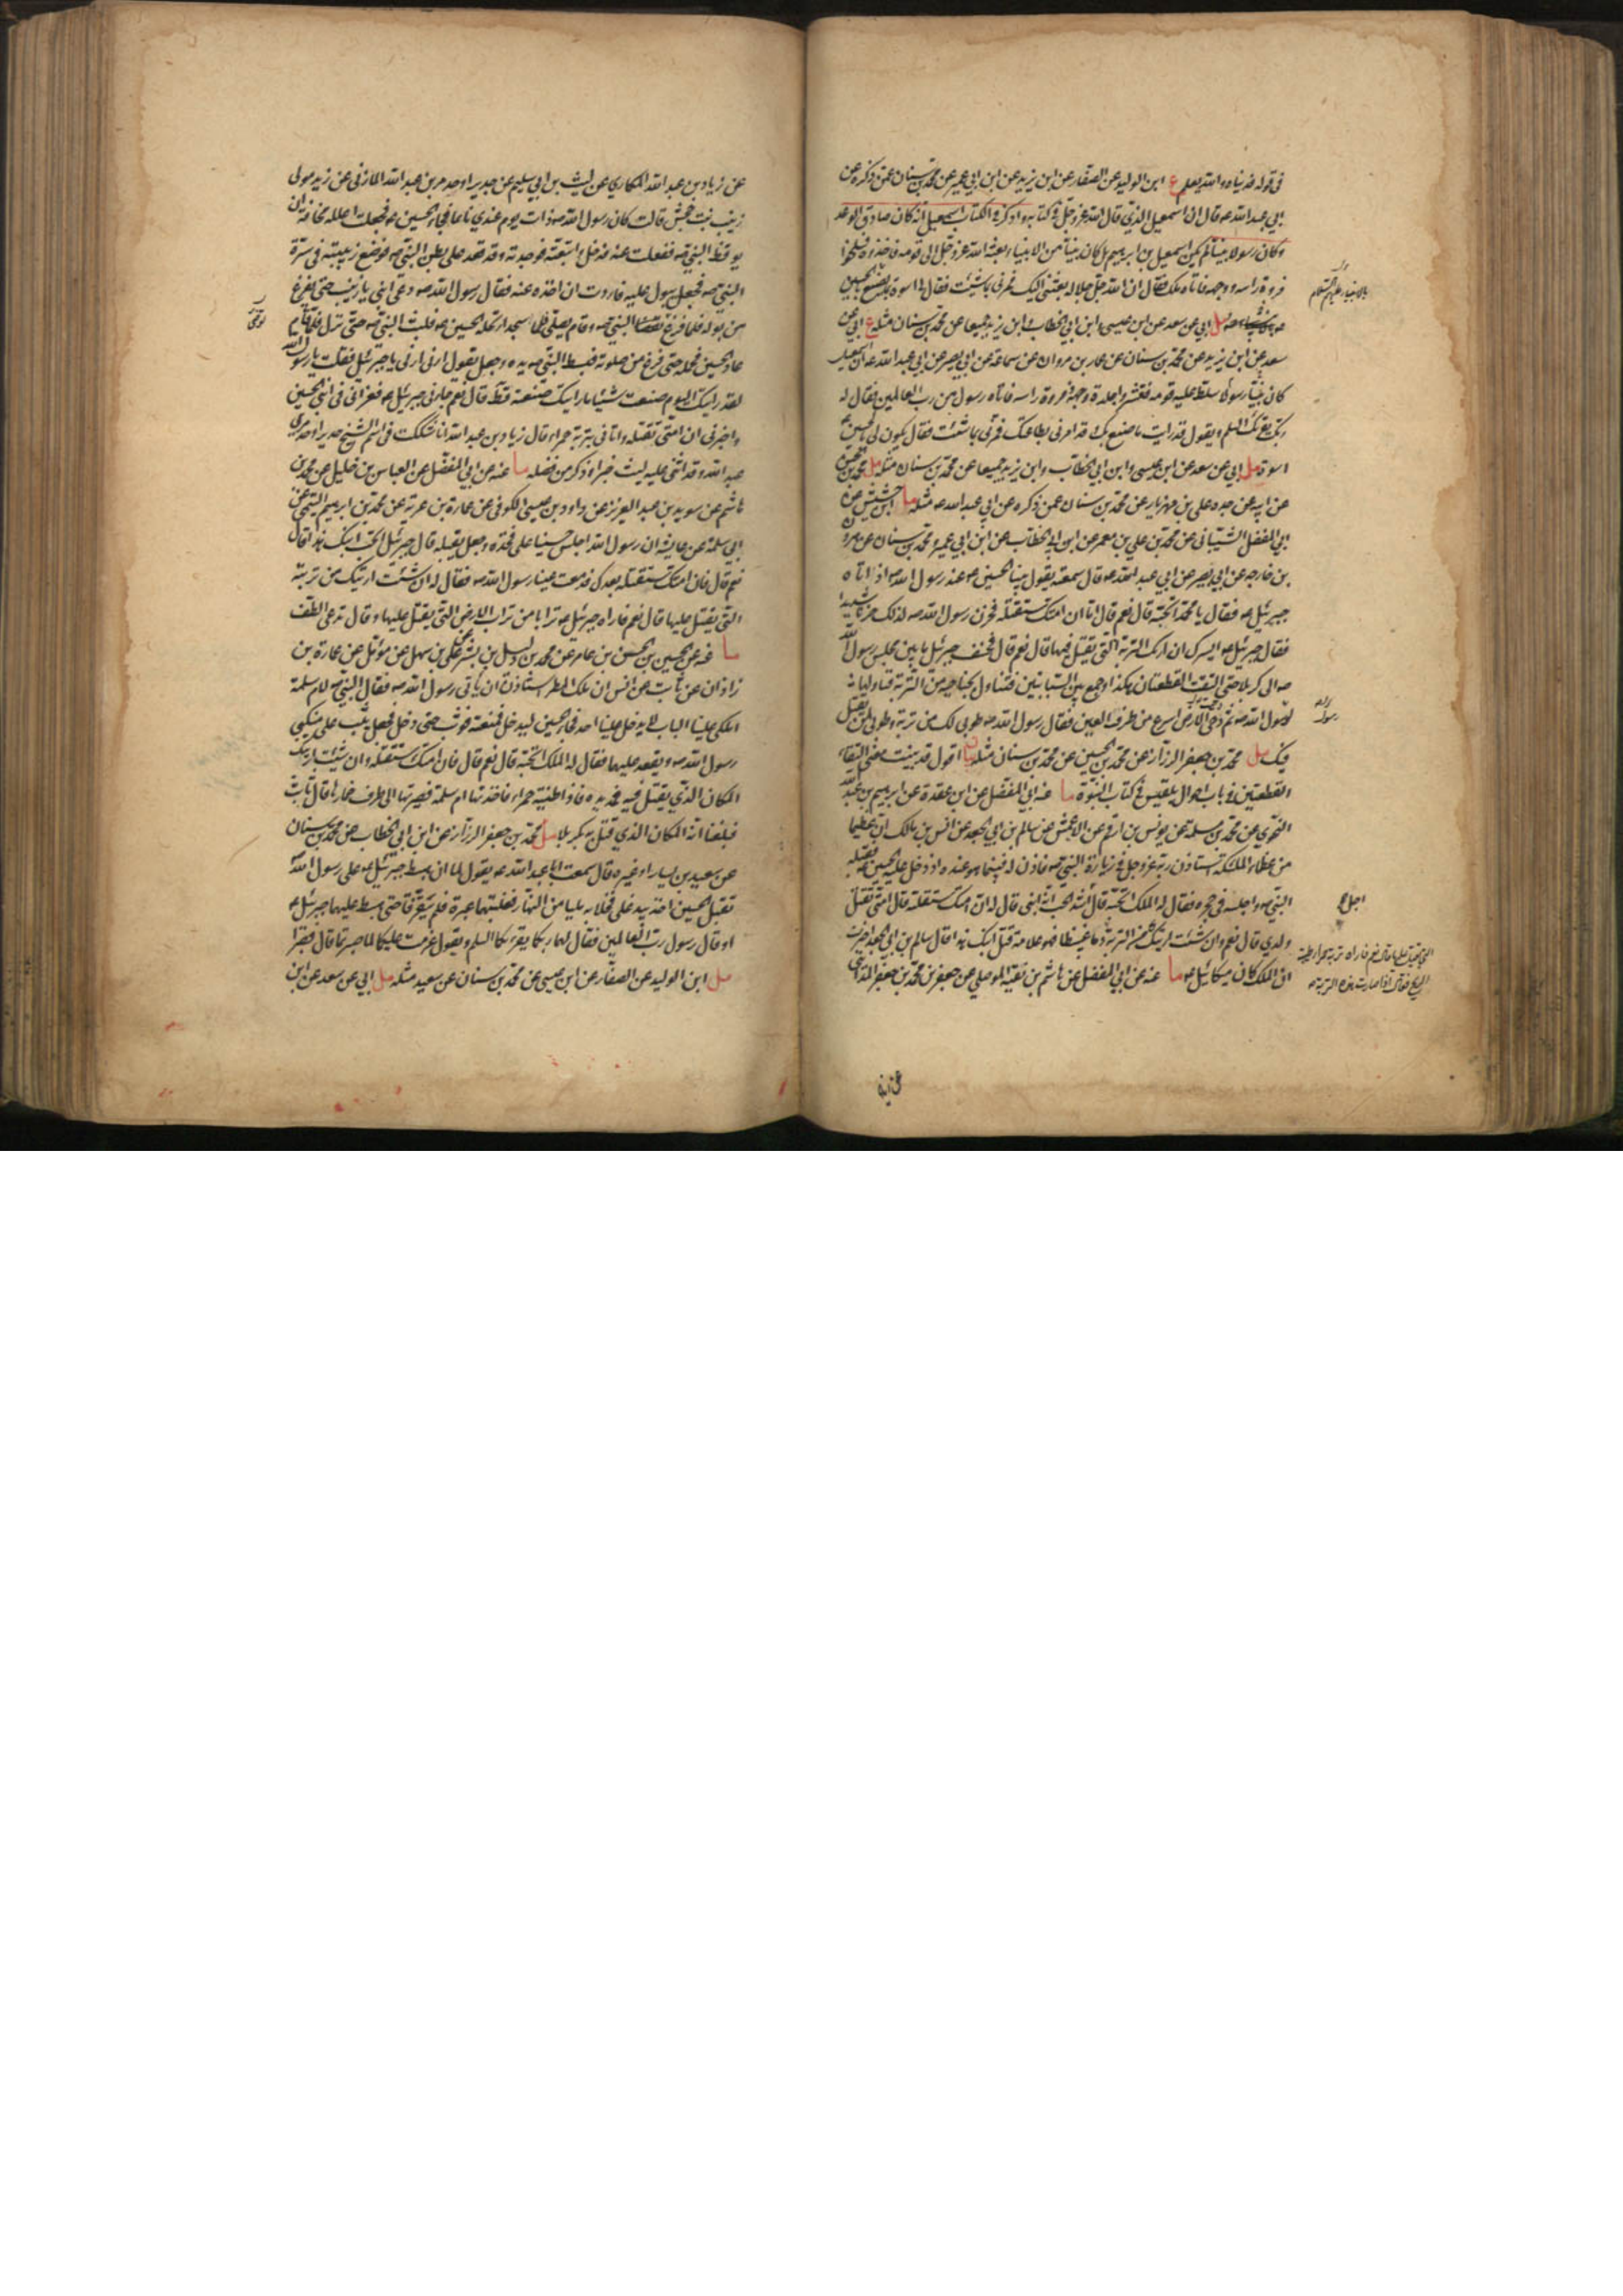 في قوله فدیناه والله یعلم ع ابن الوليد عن الصفار عن ابن يزيد عن ابن ابي عمير عن محمد بن سنان عمن ذكره عن
ابي عبد الله ع قال ان اسمعيل الذي قال الله عز وجل في كتابه واذكر في الكتاب اسمعيل انه كان صادق الوعد
وكان رسولا نبيا لم يكن اسمعيل بن ابرهيم بل كان نبيا من الانبياء بعثه الله عز وجل الى قومه فاخذوه فسلخوا
فروة راسه ووجهه فاتاه ملك فقال ان الله جل جلاله بعثني اليك فمرني بما شئت فقال لي اسوة بما يصنع بالحسين
بالانبياء عليهم السلام
مل ابي عن سعد عن ابن عيسى وابن ابي الخطاب وابن يزيد جميعا عن محمد بن سنان مثله ع ابي عن
سعد عن ابن يزيد عن محمد بن سنان عن عمار بن مروان عن سماعة عن ابي بصير عن ابي عبد الله ع ان اسمعيل
كان نبيا رسولا سلط عليه قومه فقشروا جلدة وجهه وفروة راسه فاتاه رسول من رب العالمين فقال له
ربك يقرئك السلم ويقول قد رايت ما صنع بك وقد امرني بطاعتك فمرني بما شئت فقال يكون لي بالحسين ع
اسوة مل ابي عن سعد عن ابن عيسى وابن ابي الخطاب وابن يزيد جميعا عن محمد بن سنان مثله مل محمد بن الحسن
عن ابيه عن جده علي بن مهزيار عن محمد بن سنان عمن ذكره عن ابي عبد الله ع مثله ما ابن حشيش عن
ابي المفضل الشيباني عن محمد بن علي بن معمر عن ابن ابي الخطاب عن ابن ابي عمير ومحمد بن سنان عن هرون
بن خارجه عن ابي بصير عن ابي عبد الله ع قال سمعته يقول بينا الحسين ع عند رسول الله ص اذ اتاه
جبرئيل ع فقال يا محمد اتحبه قال نعم قال اما ان امتك ستقتله فحزن رسول الله ص لذلك حزنا شديدا
فقال جبرئيل ع ايسرك ان اريك التربة التي يقتل فيها قال نعم قال فخسف جبرئيل ما بين مجلس رسول الله
ص الى كربلا حتى التقت القطعتان هكذا وجمع بين السبابتين فتناول بجناحيه من التربة فناولها
لرسول الله ص ثم دحى الارض اسرع من طرف العين فقال رسول الله ص طوبى لك من تربة وطوبى لمن يقتل
فيك مل محمد بن جعفر الرزاز عن محمد بن الحسين عن محمد بن سنان مثله بيان اقول قد بينت معنى التقاء
القطعتين في باب احوال بلقيس في كتاب النبوة ما عنه عن ابي المفضل عن ابن عقدة عن ابرهيم بن عبد الله
النحوي عن محمد بن سلمة عن يونس بن ارقم عن الاعمش عن سالم بن ابي الجعد عن انس بن مالك ان عظيما
من عظماء الملئكة استاذن ربه عز وجل في زيارة النبي ص فاذن له فبينما هو عنده اذ دخل عليه الحسين ع فقبله
النبي ص واجلسه في حجره فقال له الملك اتحبه قال اشد الحب انه ابني قال له ان امتك ستقتله قال امتي تقتل
اجل ع
ولدي قال نعم وان شئت اريتك من التربة
ان الملك كان ميكائيل ع ما عنه عن ابي المفضل عن هاشم بن نقيه الموصلي عن جعفر بن محمد بن جعفر المدائني
عن زياد بن عبد الله المكاري عن ليث بن ابي سليم عن حدير او حدمر بن عبد الله المازني عن زيد مولى
زينب بنت جحش قالت كان رسول الله ص ذات يوم عندي نائما فجاء الحسين ع فجعلت اعلله مخافة ان
يوقظ النبي ص فغفلت عنه فدخل واتبعته فوجدته وقد قعد على بطن النبي ص فوضع زبيبته في سرة
النبي ص فجعل يبول عليه فاردت ان اخذه عنه فقال رسول الله ص دعي ابني يا زينب حتى يفرغ
من بوله فلما فرغ توضأ النبي ص وقام يصلي فلما سجد ارتحله الحسين ع فلبث النبي ص حتى نزل فلما قام
عاد الحسين فحمله حتى فرغ من صلوته فبسط النبي ص يده وجعل يقول ارني ارني يا جبرئيل فقلت يا رسول الله
لقد رايتك اليوم صنعت شيئا ما رايتك صنعته قط قال نعم جاءني جبرئيل ع فعزاني في ابني الحسين
واخبرني ان امتي تقتله واتاني بتربة حمراء قال زياد بن عبد الله انا شككت في اسم الشيخ حدير او حدمر بن
عبد الله وقد اثنى عليه ليث خيرا وذكر من فضله ما عنه عن ابي المفضل عن العباس بن خليل عن محمد بن
هاشم عن سويد بن عبد العزيز عن داود بن عيسى الكوفي عن عمارة بن عرية عن محمد بن ابرهيم التيمي عن
ابي سلمة عن عايشة ان رسول الله اجلس حسينا على فخذه وجعل يقبله قال جبرئيل اتحب ابنك هذا قال
نعم قال فان امتك ستقتله بعدك فدمعت عينا رسول الله ص فقال له ان شئت اريتك من تربته
التي يقتل عليها قال نعم فاراه جبرئيل ع ترابا من تراب الارض التي يقتل عليها وقال تدعى الطف
ما عنه عن الحسين بن الحسن بن عامر عن محمد بن دليل بن بشر عن علي بن سهل عن مؤمل عن عمارة بن
زاذان عن ثابت عن انس ان ملك المطر استاذن ان ياتي رسول الله ص فقال النبي ص لام سلمة
املكي علينا الباب لا يدخل علينا احد فجاء الحسين ليدخل فمنعته فوثب حتى دخل فجعل يثب على منكبي
رسول الله ص ويقعد عليهما فقال له الملك اتحبه قال نعم قال فان امتك ستقتله وان شئت اريتك
المكان الذي يقتل فيه فمد يده فاذا طينة حمراء فاخذتها ام سلمة فصيرتها الى طرف خمارها قال ثابت
فبلغنا انه المكان الذي قتل به بكربلا مل محمد بن جعفر الرزاز عن ابن ابي الخطاب عن محمد بن سنان
عن سعيد بن يسار او غيره قال سمعت ابا عبد الله ع يقول لما ان هبط جبرئيل ع على رسول الله
بقتل الحسين اخذ بيد علي فخلا به مليا من النهار فغلبتهما عبرة فلم يتفرقا حتى هبط عليهما جبرئيل ع
او قال رسول رب العالمين فقال لهما ربكما يقرئكما السلم ويقول عزمت عليكما لما صبرتما قال فصبرا
مل ابن الوليد عن الصفار عن ابن عيسى عن محمد بن سنان عن سعيد مثله مل ابي عن سعد عن ابن